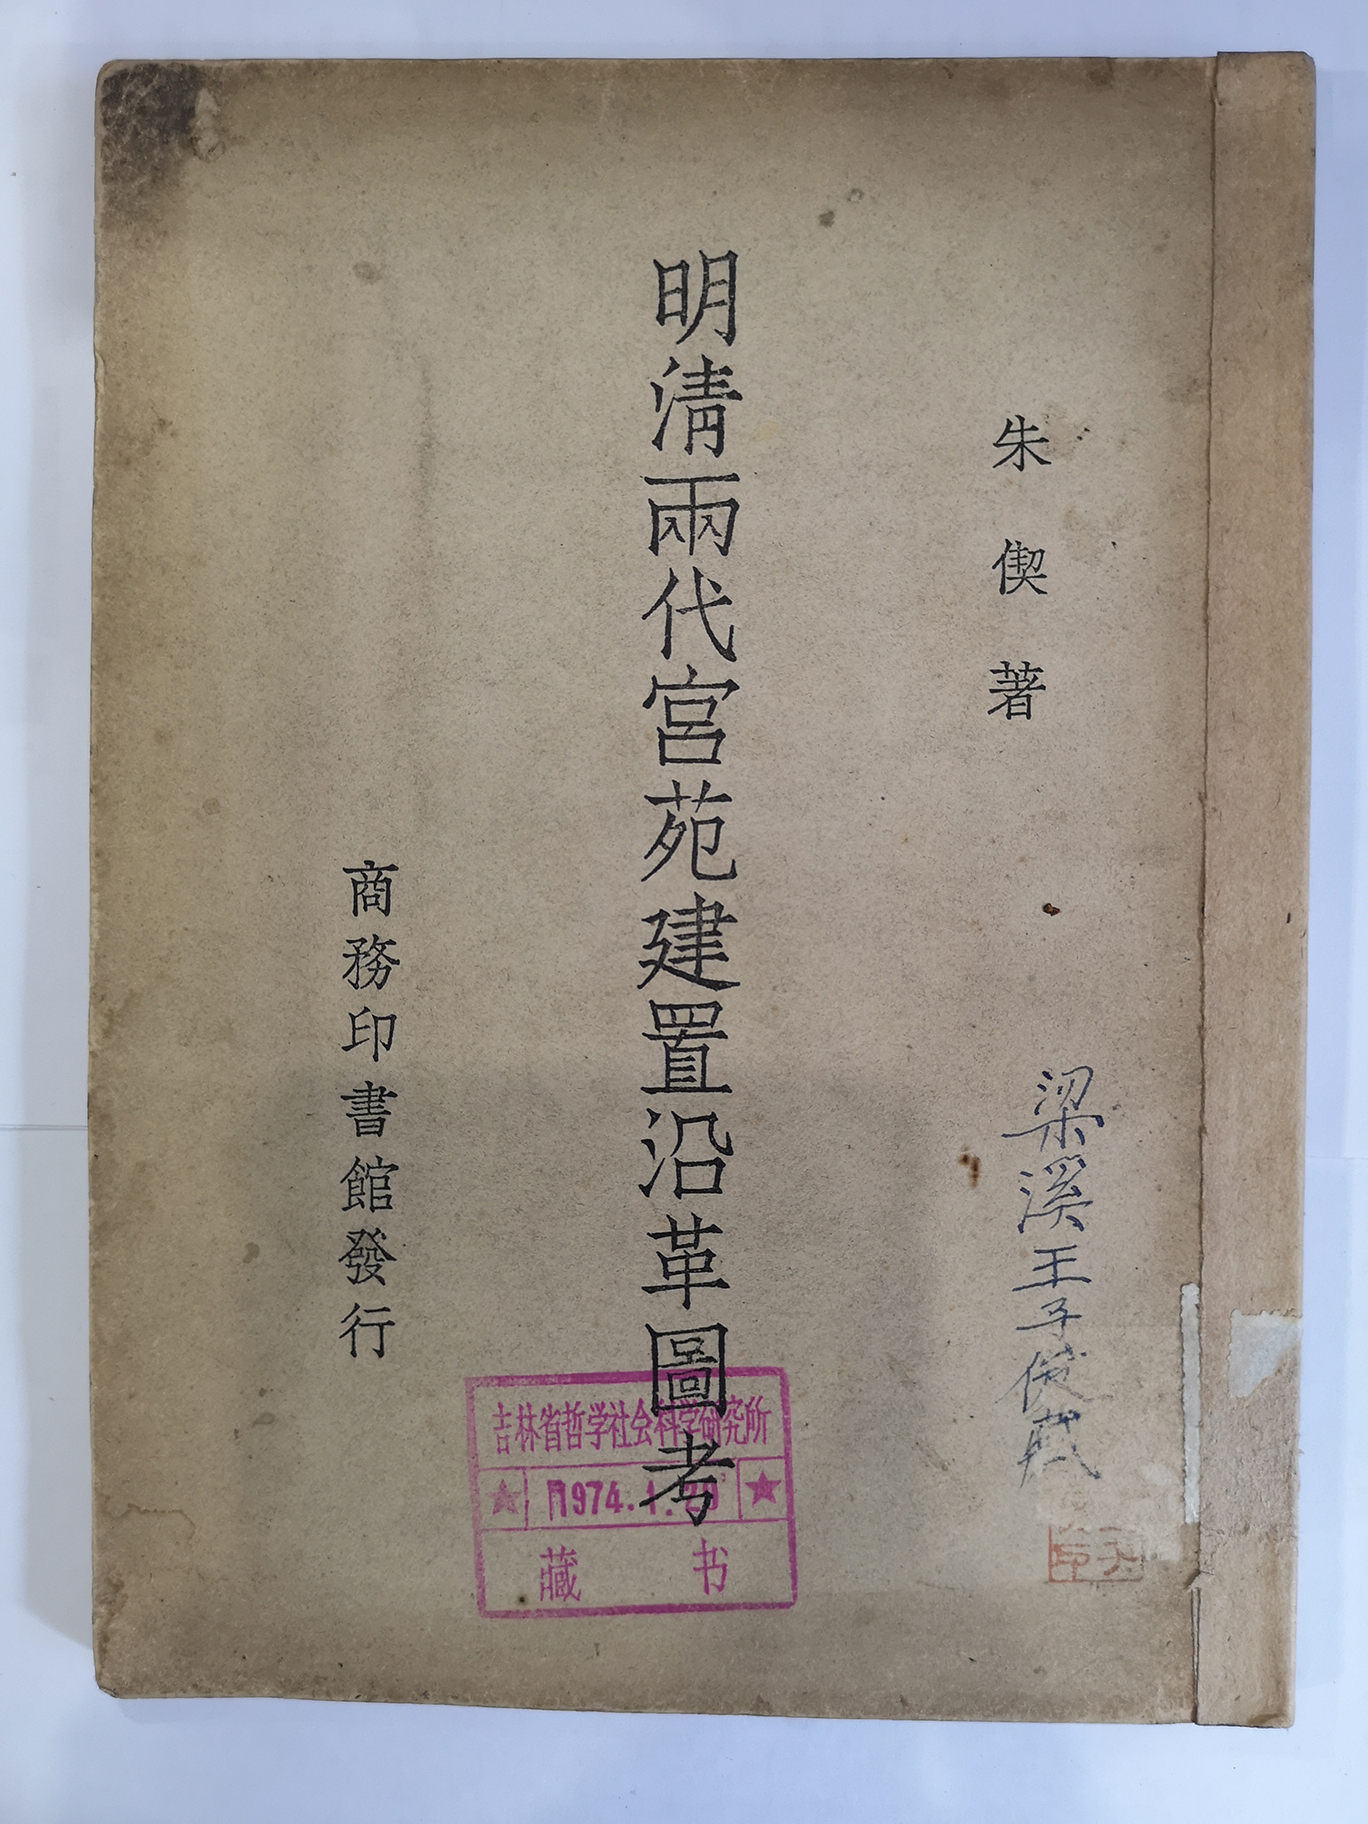 朱偰著
明清兩代宮苑建置沿革圖考
商務印書館發行
梁溪王子俊藏
吉林省哲学社会科学研究所
★ 1974.1.20 ★
藏书